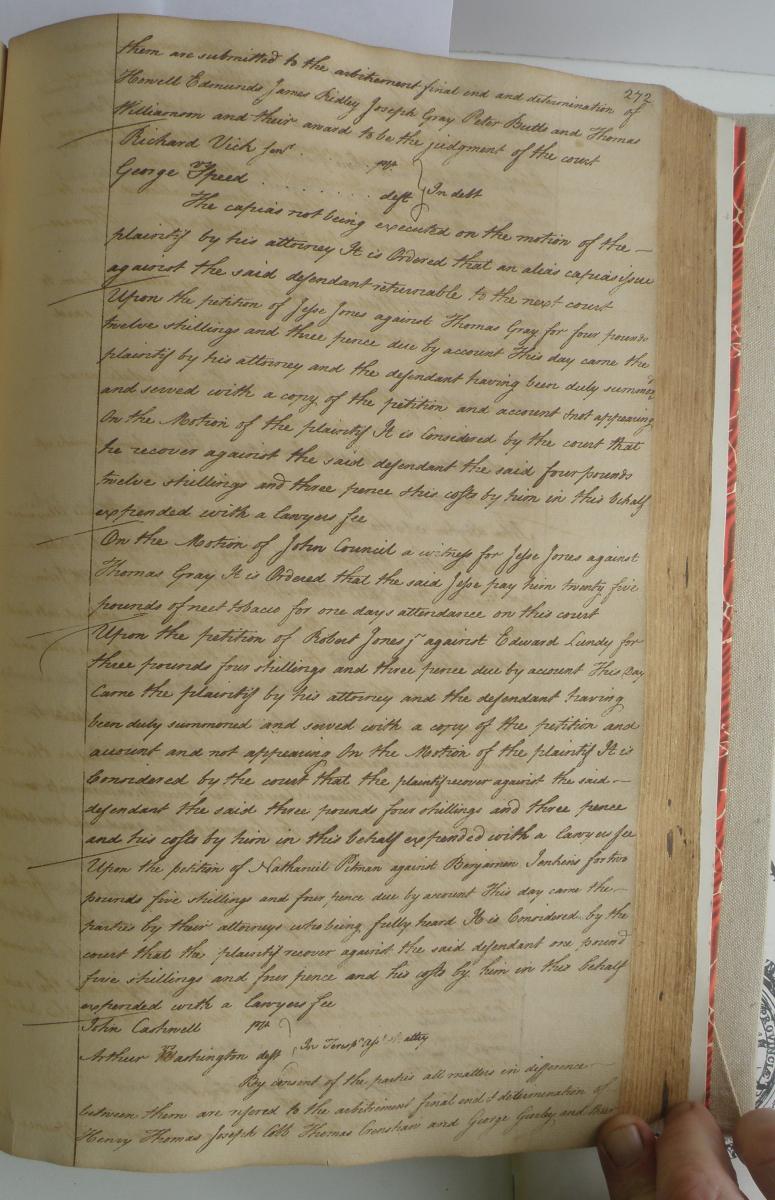 272
them are submitted to the arbitrement final end and determination of
Howell Edmunds James Ridley Joseph Gray Peter Butts and Thomas
Williamson and their award to be the judgment of the court
Richard Vick senr . . . . plt
George Speed . . . . . . . . deft } In debt
The capias not being executed on the motion of the —
plaintif by his attorney It is Ordered that an alias capias issue
against the said defendant returnable to the next court
Upon the petition of Jesse Jones against Thomas Gray for four pounds
twelve shillings and three pence due by account This day came the
plaintif by his attorney and the defendant having been duly summoned
and served with a copy of the petition and account & not appearing
On the Motion of the plaintif It is Considered by the court that
he recover against the said defendant the said four pounds
twelve shillings and three pence & his costs by him in this behalf
expended with a lawyers fee
On the Motion of John Council a witness for Jesse Jones against
Thomas Gray It is Ordered that the said Jesse pay him twenty five
pounds of neet tobacco for one days attendance on this court
Upon the petition of Robert Jones jr against Edward Lundy for
three pounds four shillings and three pence due by account This day
Came the plaintif by his attorney and the defendant having
been duly summoned and served with a copy of the petition and
account and not appearing On the Motion of the plaintif It is
Considered by the court that the plaintif recover against the said —
defendant the said three pounds four shillings and three pence
and his costs by him in this behalf expended with a lawyers fee
Upon the petition of Nathaniel Pitman against Benjamin Jenkins for two
pounds five shillings and four pence due by account This day came the —
parties by their attorneys who being fully heard It is Considered by the
court that the plaintif recover against the said defendant one pound
five shillings and four pence and his costs by him in this behalf
expended with a lawyers fee
John Cashwell plt
Arthur Washington deft } In Tresps
By consent of the parties all matters in difference
between them are refered to the arbitriment final end & determenation of
Henry Thomas Joseph Cobb Thomas Crenshaw and George Gurley and their